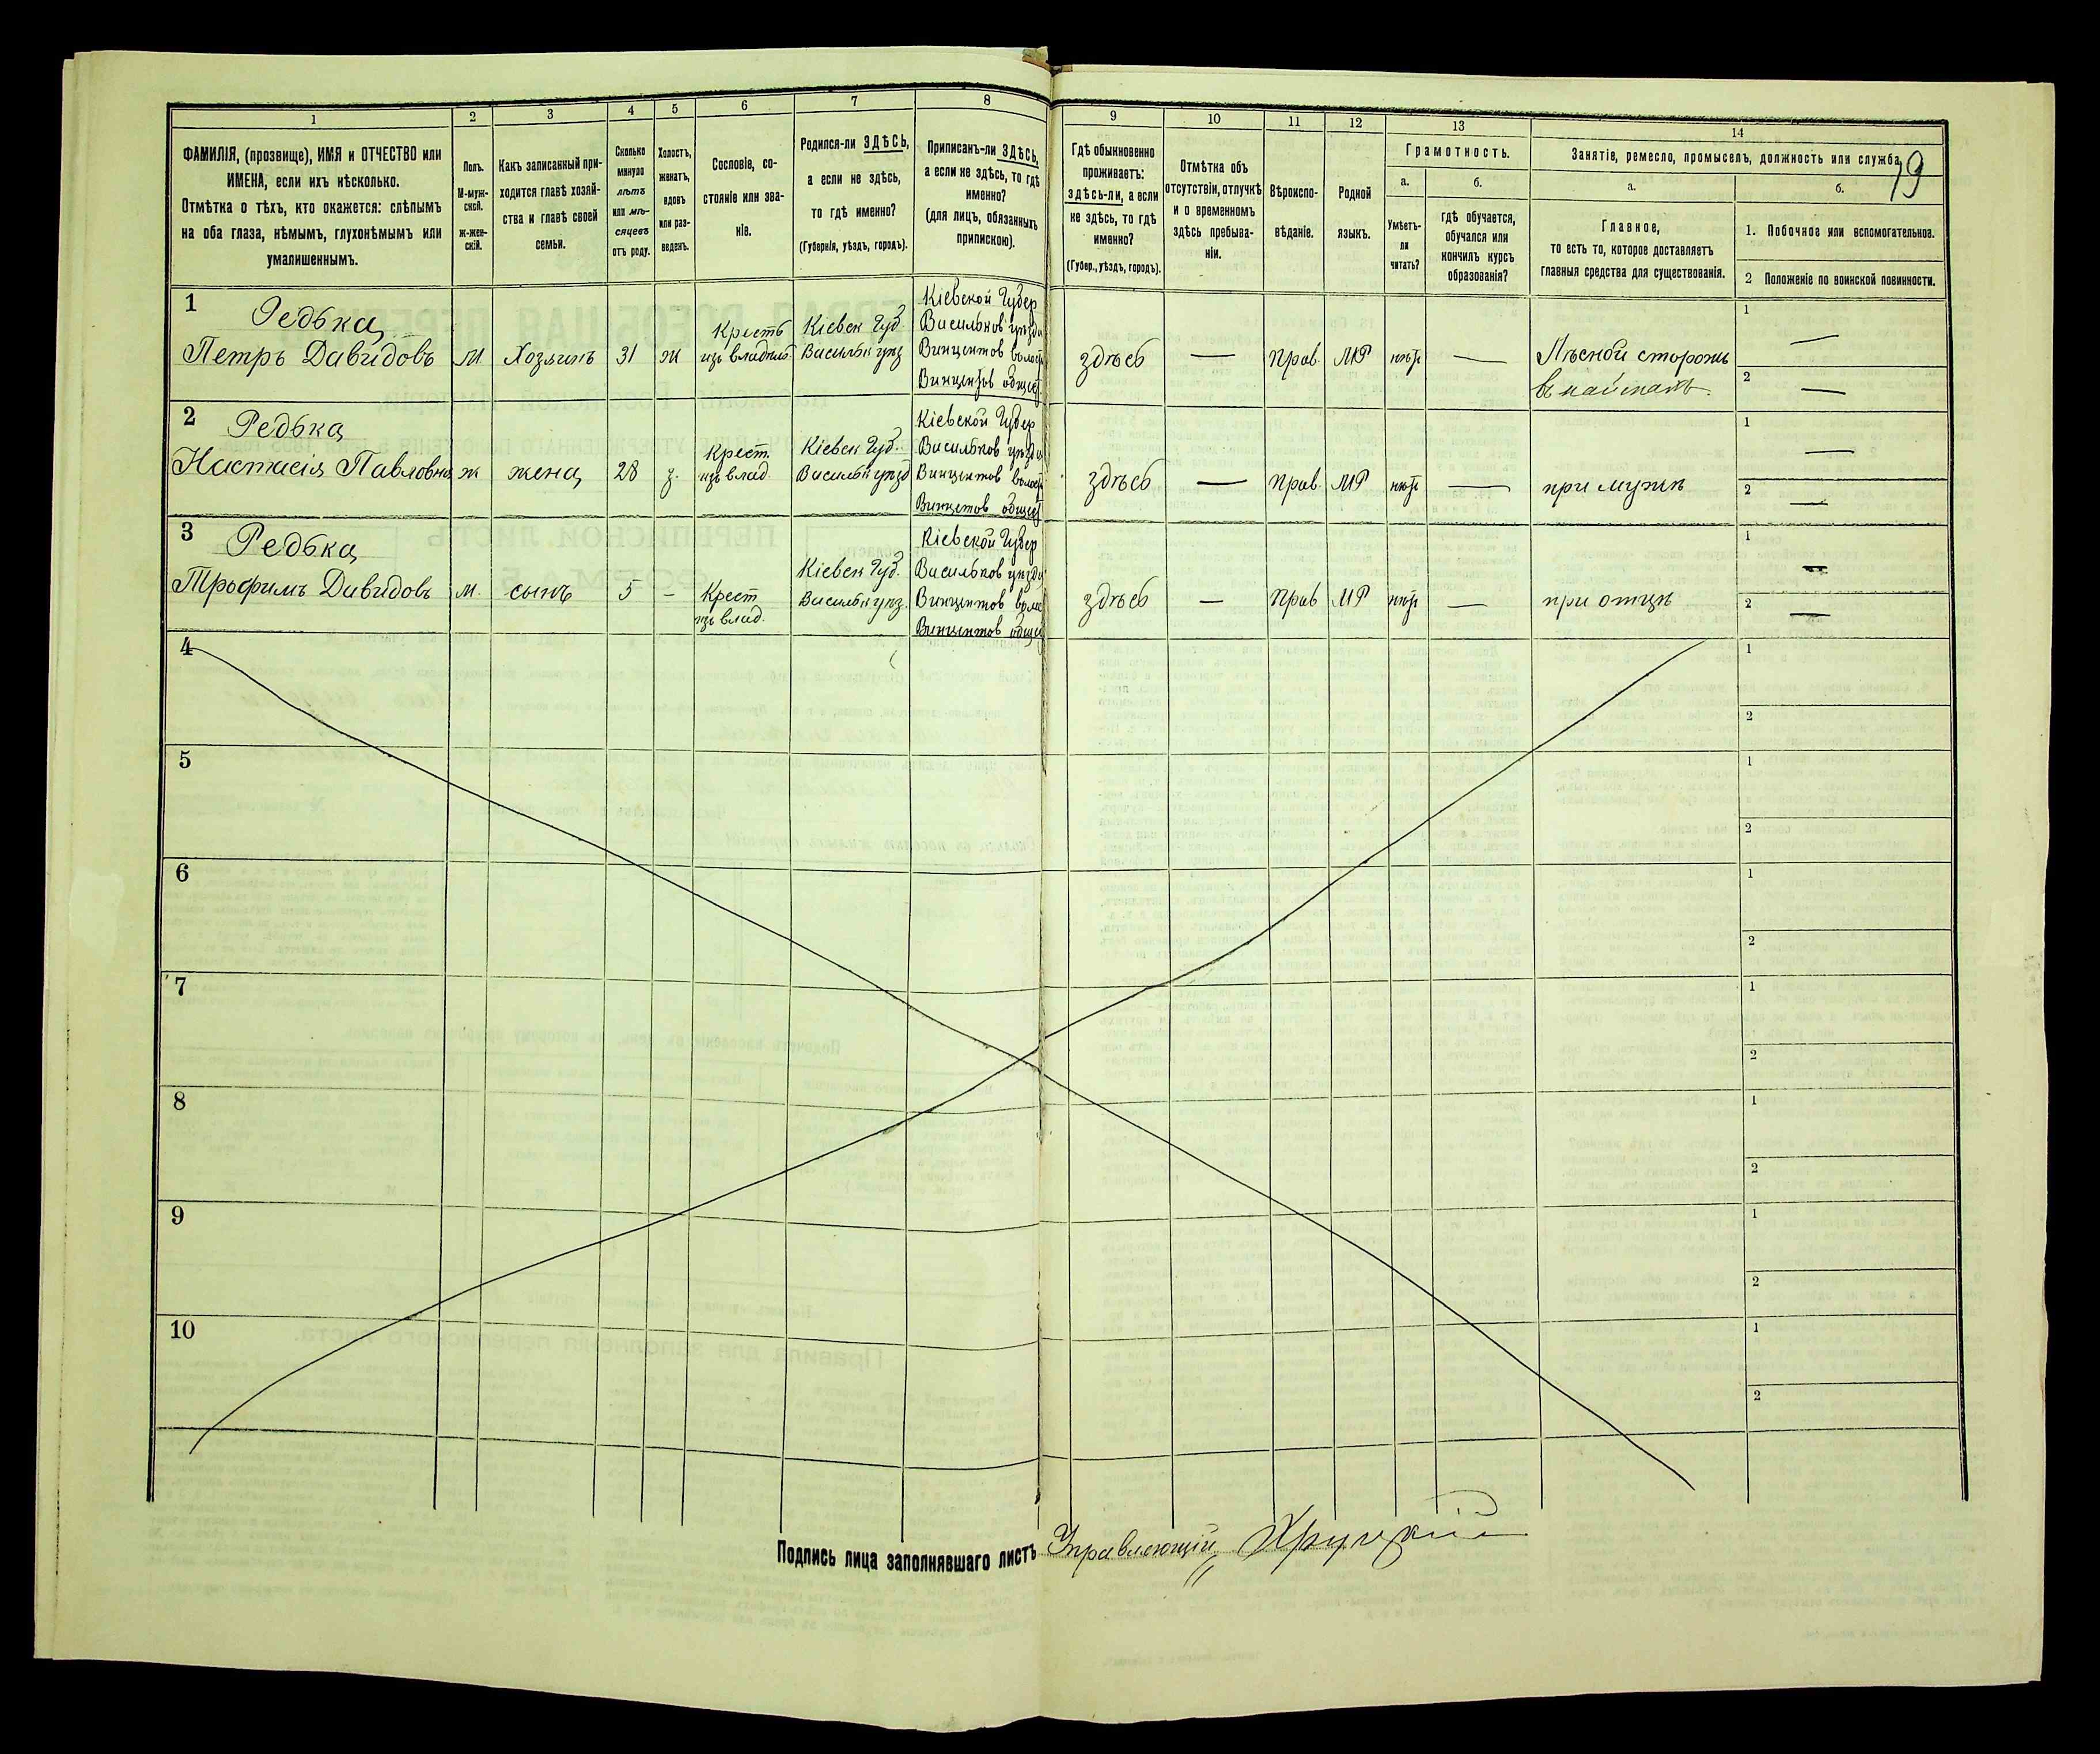 1
2
3
4
5
6
7
8
9
10
11
12
13
14
ФАМИЛІЯ, (прозвище), ИМЯ и ОТЧЕСТВО или
ИМЕНА, если ихъ нѣсколько.
Отмѣтка о тѣхъ, кто окажется: слѣпымъ
на оба глаза, нѣмымъ, глухонѣмымъ или
умалишеннымъ.
Полъ.
М-муж-
ской.
Ж-жен-
скій.
Какъ записанный при-
ходится главѣ хозяй-
ства и главѣ своей
семьи.
Сколько
минуло
лѣтъ
или мѣ-
сяцевъ
отъ роду.
Холостъ,
женатъ,
вдовъ
или раз-
веденъ.
Сословіе, со-
стояніе или зва-
ніе.
Родился-ли ЗДѢСЬ,
а если не здѣсь,
то гдѣ именно?
(Губернія, уѣздъ, городъ).
Приписанъ-ли ЗДѢСЬ,
а если не здѣсь, то гдѣ
именно?
(для лицъ, обязанныхъ
припискою).
Гдѣ обыкновенно
проживаетъ:
здѣсь-ли, а если
не здѣсь, то гдѣ
именно?
(Губер., уѣздъ, городъ).
Отмѣтка объ
отсутствіи, отлучкѣ
и о временномъ
здѣсь пребыва-
ніи.
Вѣроиспо-
вѣданіе.
Родной
языкъ.
Грамотность.
а.
Умѣетъ-
ли
читать?
б.
гдѣ обучается,
обучался или
кончилъ курсъ
образованія?
Занятіе, ремесло, промыселъ, должность или служба.
19
а.
Главное,
то есть то, которое доставляетъ
главныя средства для существованія.
б.
1. Побочное или вспомогательное.
2 Положеніе по воинской повинности.
1
Редька
Петръ Давидовъ
м
Хозяинъ
31
ж
Крестъ
изъ владѣл.
Кіевск Губ
Васильк уѣз
Кіевской Губер
Васильков уѣзда
Винцентов волост
Винцентов общест
здѣсь
—
прав.
МР
нѣтъ
—
Лѣсной сторожъ
1 —
2 —
2
Редька
Настасія Павловна
ж
жена
28
з.
Крест.
изъ влад.
Кіевск Губ.
Васильк уѣзд
Кіевской Губер
Васильков уѣзда
Винцентов волост
Винцетов общест
здѣсь
—
прав.
МР
нѣтъ
—
при мужѣ
1 —
2 —
3
Редька
Трофимъ Давидовъ
м.
сынъ
5
–
Крест
изъ влад.
Кіевск Губ.
Васильк уѣз.
Кіевской Губер
Васильков уѣзда
Винцентов волос
Винцентов общес
здѣсь
—
прав
МР
нѣтъ
—
при отцѣ
1 —
2 —
4
1
2
5
1
2
6
1
2
7
1
2
8
1
2
9
1
2
10
1
2
Подпись лица заполнявшаго листъ Управляющій